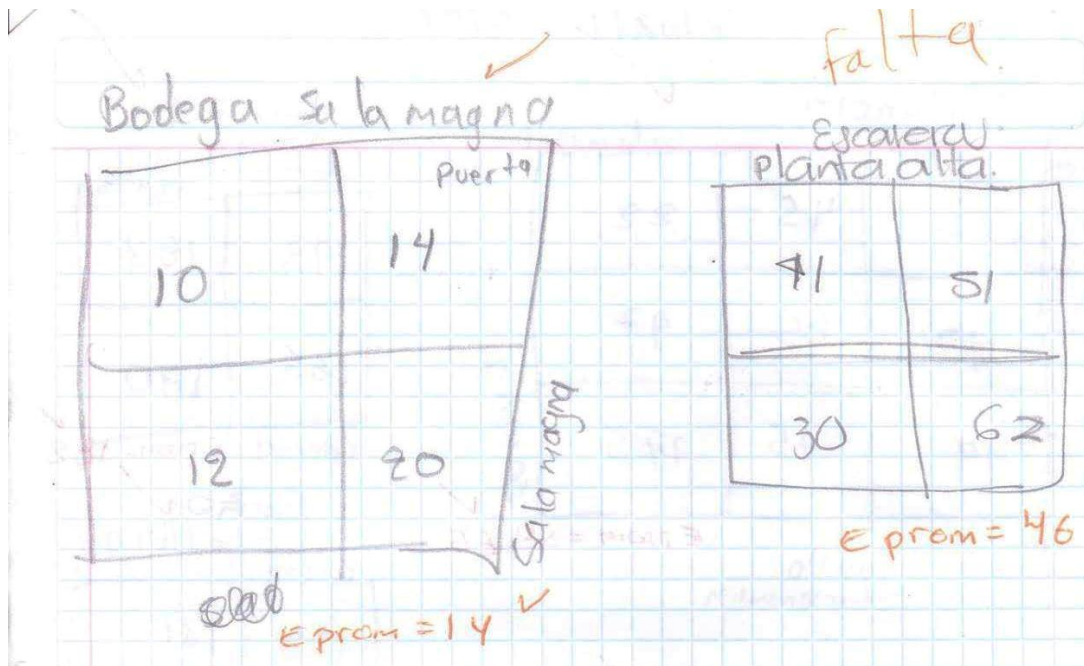 falta
Bodega Sala magna
Puerta
10
14
12
20
Sala magna
E prom = 14
Escalera
planta alta.
41
51
30
62
E prom = 46